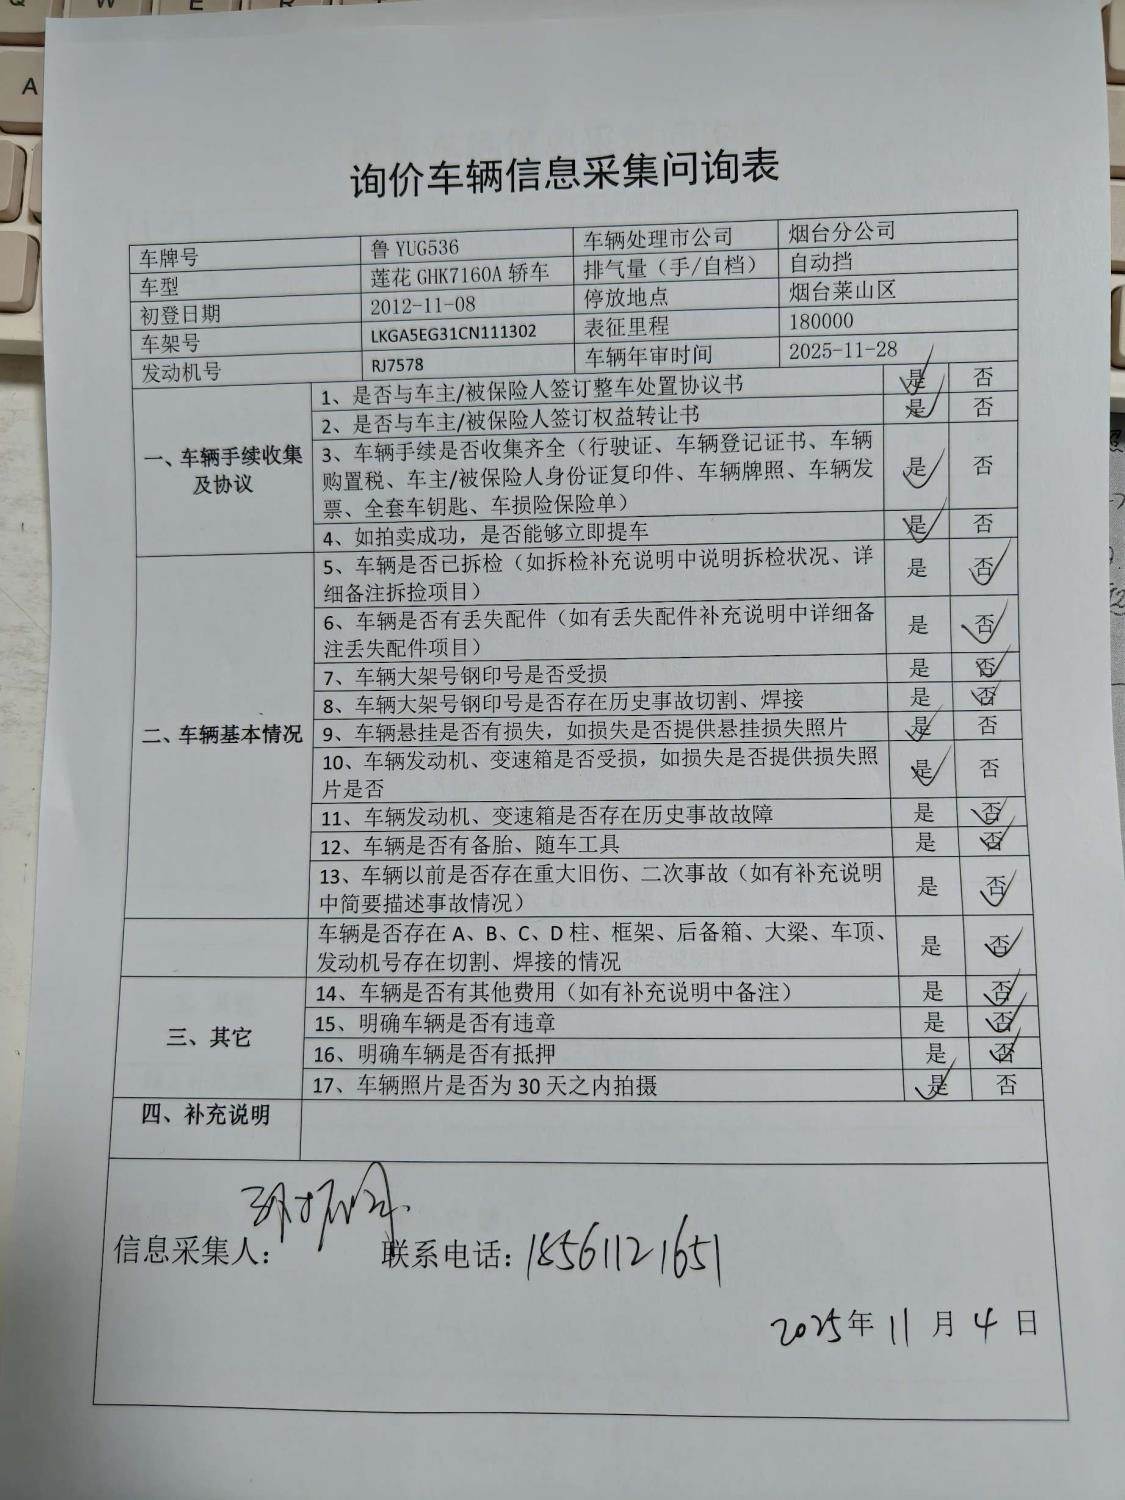 询价车辆信息采集问询表
车牌号 鲁 YUG536 车辆处理市公司 烟台分公司
车型 莲花 GHK7160A 轿车 排气量（手/自档） 自动挡
初登日期 2012-11-08 停放地点 烟台莱山区
车架号 LKGA5EG31CN111302 表征里程 180000
发动机号 RJ7578 车辆年审时间 2025-11-28
一、车辆手续收集及协议
1、是否与车主/被保险人签订整车处置协议书 是 否
2、是否与车主/被保险人签订权益转让书 是 否
3、车辆手续是否收集齐全（行驶证、车辆登记证书、车辆
购置税、车主/被保险人身份证复印件、车辆牌照、车辆发
票、全套车钥匙、车损险保险单） 是 否
4、如拍卖成功，是否能够立即提车 是 否
二、车辆基本情况
5、车辆是否已拆检（如拆检补充说明中说明拆检状况、详
细备注拆捡项目） 是 否
6、车辆是否有丢失配件（如有丢失配件补充说明中详细备
注丢失配件项目） 是 否
7、车辆大架号钢印号是否受损 是 否
8、车辆大架号钢印号是否存在历史事故切割、焊接 是 否
9、车辆悬挂是否有损失，如损失是否提供悬挂损失照片 是 否
10、车辆发动机、变速箱是否受损，如损失是否提供损失照
片是否 是 否
11、车辆发动机、变速箱是否存在历史事故故障 是 否
12、车辆是否有备胎、随车工具 是 否
13、车辆以前是否存在重大旧伤、二次事故（如有补充说明
中简要描述事故情况） 是 否
车辆是否存在 A、B、C、D 柱、框架、后备箱、大梁、车顶、
发动机号存在切割、焊接的情况 是 否
三、其它
14、车辆是否有其他费用（如有补充说明中备注） 是 否
15、明确车辆是否有违章 是 否
16、明确车辆是否有抵押 是 否
17、车辆照片是否为 30 天之内拍摄 是 否
四、补充说明
信息采集人： 联系电话：18561121651
2025年 11 月 4 日